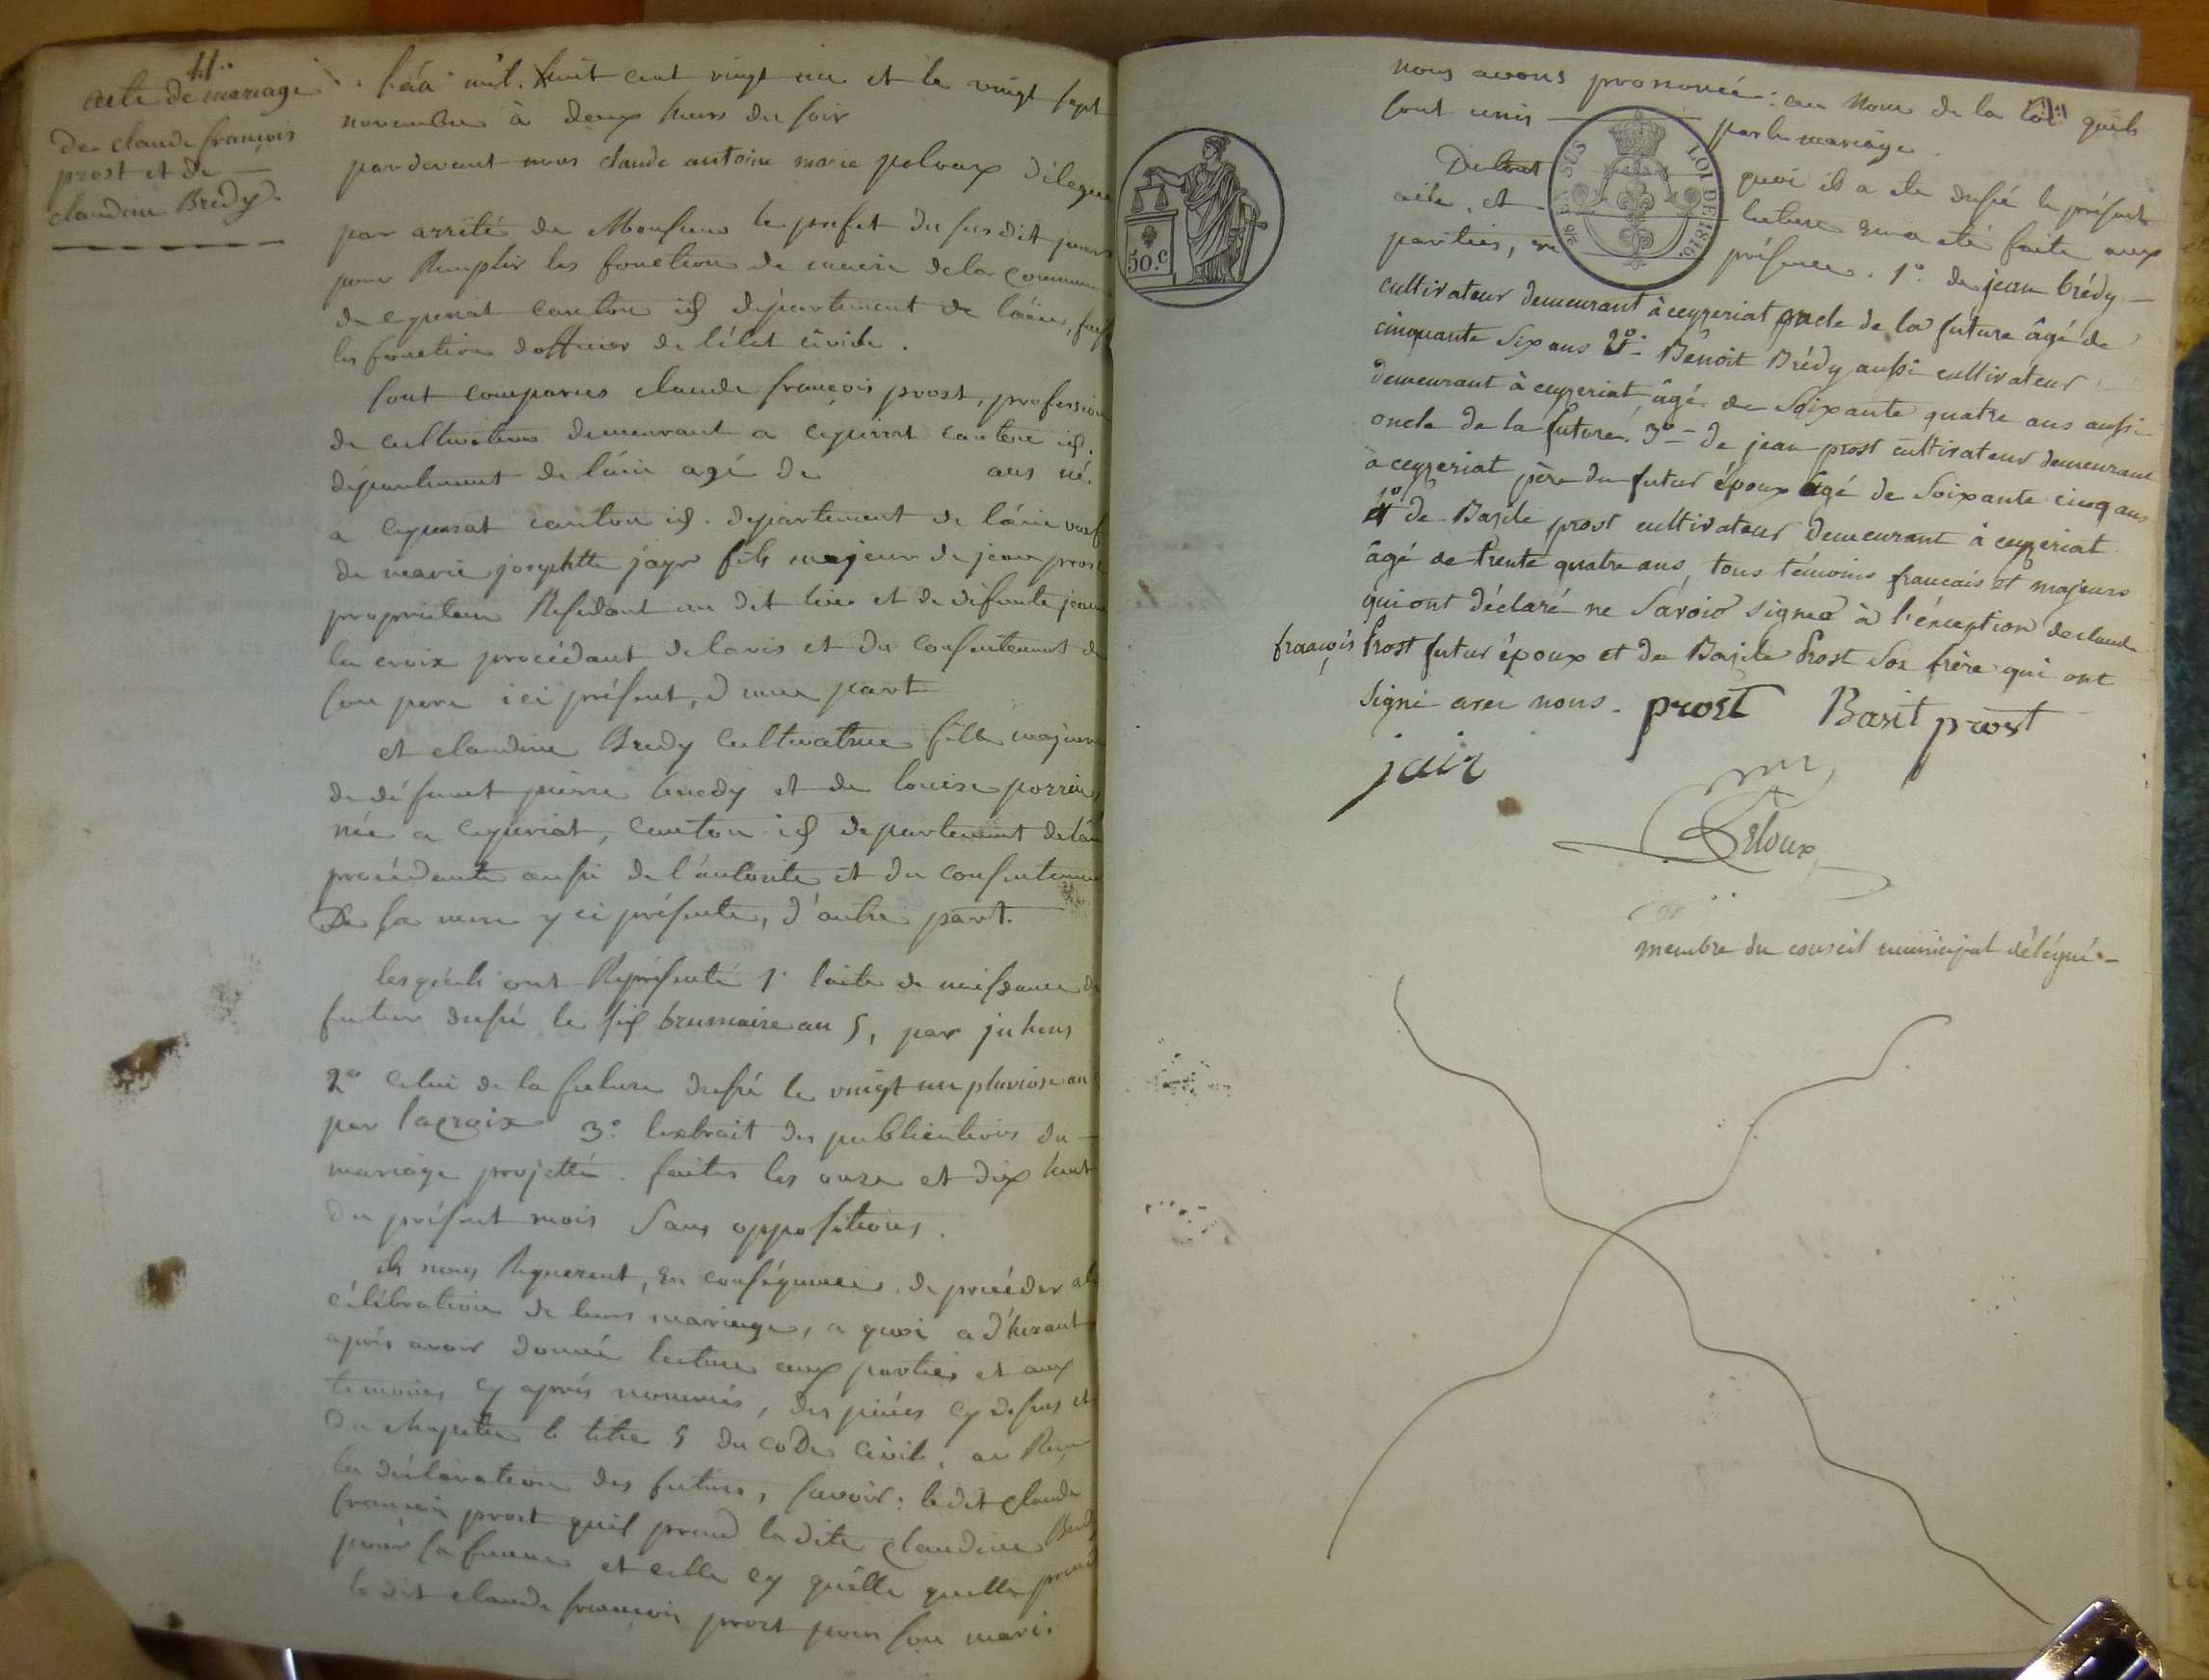 11..
acte de mariage
de claude françois
prost et de
claudine Bredy.
l'an mil huit cent vingt un et le vingt sept
novembre à deux heurs du soir
pardevant nous claude antoine marie peloux délegué
par arrêté de Monsieur le prefet du susdit jours
pour Remplir les fonction de maire de la commune
de ceyzeriat canton id département de l'ain, fais
les fonction d'officier de l'état civile.
sont comparus claude françois prost, profession
de cultivateur demeurant a ceyzeriat canton id.
département de l'ain agé de ans né
a ceyzeriat canton id. département de l'ain veuf
de marie josephtte jayr fils majeur de jean prost
proprietaire Residant au dit lieu et de défunte jeanne
la croix procédant de lavis et du consentement de
son pere ici présent, d'une part
et claudine Bredy cultivatrice fille majeure
de défunt pierre bredy et de louise perrin
née a ceyzeriat, canton id departement de l'ain
procédante aussi de l'autorité et du consentement
De sa mere y ci présente, d'autre part.
lesquels ont Représenté 1° l'acte de naissance du
futur dressé le six brumaire an 5, par juhens
2° celui de la future dressé le vingt un pluviose an
par lacroix 3° lextrait des publications du
mariage projetté. faites les onze et dix huit
du présent mois Sans oppositions.
ils nous Requerent, en conséquence de procéder a la
célébration de leurs mariage, a quoi a d'hérant
après avoir donné lecture aux parties et aux
temoins cy après nommés, des pièces cy dessus et
du chapitre le titre 5 du code civil, au Reçu
la déclaration des futurs, savoir: le dit claude
françois prost quil prend la dite claudine Bredy
pour sa femme et celle cy quelle quelle prend
le dit claude françois prost pour son mari.
nous avons prononcé: au Nom de la loi quils
sont unis par le mariage.
De tout quoi il a été dressé le présent
acte, et lecture en a été faite aux
parties, en présence. 1° de jean brédy
cultivateur demeurant à ceyzeriat oncle de la future âgé de
cinquante Six ans 2° Benoit Brédy aussi cultivateur
demeurant à ceyzeriat, âgé de Soixante quatre ans aussi
oncle de la future. 3° de jean prost cultivateur demeurant
à ceyzeriat père du futur époux âgé de Soixante cinq ans
4° de Bazile prost cultivateur demeurant à ceyzeriat
âgé de trente quatre ans, tous témoins francais et majeurs
qui ont déclaré ne Savoir Signer à l'exception de claude
françois Prost futur époux et de Bazile Prost Son frère qui ont
Signé avec nous. prost Basit prost
jair
Peloux
membre du conseil municipal délégué
50.c
5/6 EN SUS
LOI DE 1816.